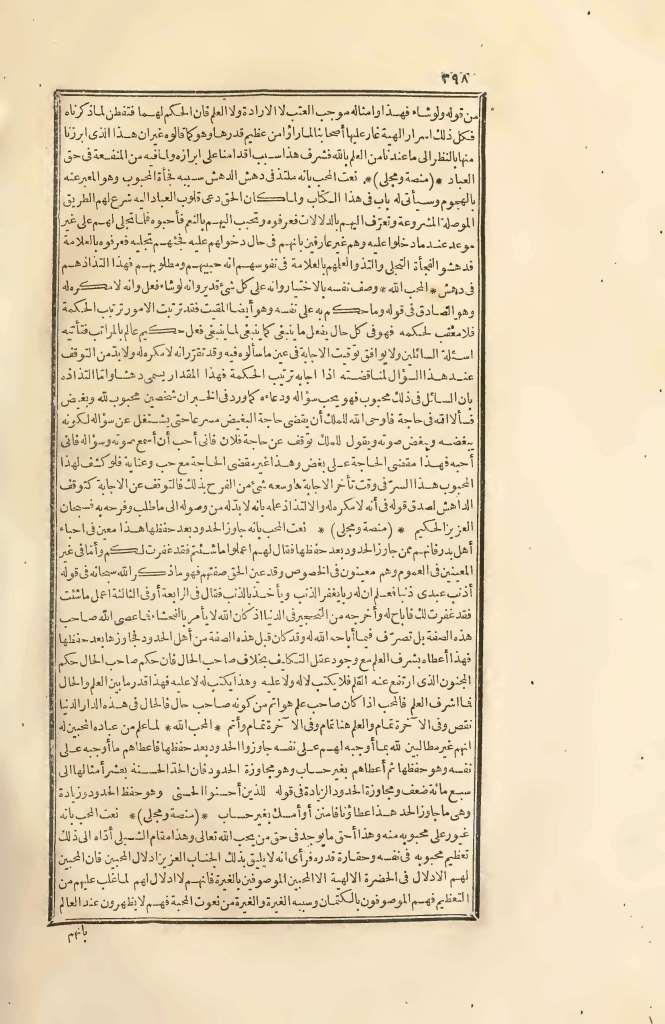 ٣٩٨
من قوله ولو شاء فهذا وامثاله موجب العتب لا الارادة ولا العلم فان الحكم لهما فتفطن لما ذكرناه
فكل ذلك اسرار الهية غار عليها أصحابنا لما رأوا من عظيم قدرها وهو كما قالوه غير ان هذا الذى ابرزنا
منها بالنظر الى ما عندنا من العلم بالله قشرف هذا سبب اقدامنا على ابرازه ولما فيه من المنفعة فى حق
العباد * (منصة ومجلى) * نعت المحب بانه ملتذ فى دهش الدهش سببه فجأة المحبوب وهو المعبر عنه
بالهجوم وسيأتى له باب فى هذا الكتاب ولما كان الحق دعى قلوب العباد اليه شرع لهم الطريق
الموصلة المشروعة وتعرّف اليهم بالدلالات فعرفوه وتحبب اليهم بالنعم فأحبوه فلما تجلى لهم على غير
موعد عندما دخلوا عليه وهم غير عارفين بانهم فى حال دخولهم عليه فجئهم تجليه فعرفوه بالعلامة
فدهشوا الفجأة التجلى والتذوا لعلمهم بالعلامة فى نفوسهم انه حبيبهم ومطلوبهم فهذا التذاذهم
فى دهش * المحب الله * وصف نفسه بالاختيار وانه على كل شئ قدير وانه لو شاء فعل وانه لا مكره له
وهو الصادق فى قوله وما حكم به على نفسه وهو أيضا المقيت فقد ترتبت الامور ترتيب الحكمة
فلا معقب لحكمه فهو فى كل حال يفعل ما ينبغى كما ينبغى لما ينبغى فعل حكيم عالم بالمراتب فتأتيه
اسئلة السائلين ولا يوافق توقيت الاجابة فى عين ما سألوه فيه وقد تقرّر انه لا مكره له ولا بد من التوقف
عند هذا السؤال لمناقضته اذا اجابه ترتيب الحكمة فهذا المقدار يسمى دهشا واما التذاذه
بان السائل فى ذلك محبوب فهو يحب سؤاله ودعاءه كما ورد فى الخبر ان شخصين محبوب لله وبغيض
فسألا الله فى حاجة فاوحى الله للملك أن يقضى حاجة البغيض مسرعا حتى يشتغل عن سؤاله لكونه
يبغضه ويبغض صوته ويقول للملك توقف عن حاجة فلان فانى أحب أن أسمع صوته وسؤاله فانى
أحبه فهذا مقضى الحاجة على بغض وهذا غير مقضى الحاجة مع حب وعناية فلو كشف لهذا
المحبوب هذا السرّ فى وقت تأخر الاجابة ما وسعه شئ من الفرح بذلك فالتوقف عن الاجابة كتوقف
الداهش لصدق قوله فى أنه لا مكره له والالتذاذ علمه بانه لا بدّ له من وصوله الى ما طلب وفرحه به فسبحان
العزيز الحكيم * (منصة ومجلى) * نعت المحب بانه جاوز الحدود بعد حفظها هذا معين فى احباء
أهل بدر فانهم ممن جاوز الحدود بعد حفظها فقال لهم اعملوا ما شئتم فقد غفرت لكم وأما فى غير
المعينين فى العموم وهم معينون فى الخصوص وقد عين الحق صفتهم فهو ما ذكر الله سبحانه فى قوله
أذنب عبدى ذنبا فعلم ان له ربا يغفر الذنب ويأخذ بالذنب فقال فى الرابعة أو فى الثالثة اعمل ما شئت
فقد غفرت لك فاباح له وأخرجه من التحجير فى الدنيا اذ كان الله لا يأمر بالفحشاء فما عصى الله صاحب
هذه الصفة بل تصرّف فيما أباحه الله له وقد كان قبل هذه الصفة من أهل الحدود فجاوزها بعد حفظها
فهذا أعطاه شرف العلم مع وجود عقل التكليف بخلاف صاحب الحال فان حكم صاحب الحال حكم
المجنون الذى ارتفع عنه القلم فلا يكتب لا له ولا عليه وهذا يكتب له لا عليه فهذا قدر ما بين العلم والحال
فما اشرف العلم فالمحب اذا كان صاحب علم هو اتم من كونه صاحب حال فالحال فى هذه الدار الدنيا
نقص وفى الآخرة تمام والعلم هنا تمام وفى الآخرة تمام وأتم * المحب الله * لما علم من عباده المحبين له
انهم غير مطالبين لله بما أوجبه لهم على نفسه جاوزوا الحدود بعد حفظها فاعطاهم ما أوجبه على
نفسه وهو حفظها ثم أعطاهم بغير حساب وهو مجاوزة الحدود فان الحدّ الحسنة بعشر أمثالها الى
سبع مائة ضعف ومجاوزة الحدود الزيادة فى قوله للذين أحسنوا الحسنى وهو حفظ الحدود وزيادة
وهى ما جاوز الحد هذا عطاؤنا فامنن أو أمسك بغير حساب * (منصة ومجلى) * نعت المحب بانه
غيور على محبوبه منه وهذا أحق ما يوجد فى حق من يحب الله تعالى وهذا مقام الشبلى أدّاه الى ذلك
تعظيم محبوبه فى نفسه وحقارة قدره فرأى انه لا يليق بذلك الجناب العزيز ادلال المحبين فان المحبين
لهم الادلال فى الحضرة الالهية الا المحبين الموصوفين بالغيرة فانهم لا ادلال لهم لما غلب عليهم من
التعظيم فهم الموصوفون بالكتمان وسببه الغيرة والغيرة من نعوت المحبة فهم لا يظهرون عند العالم
بانهم